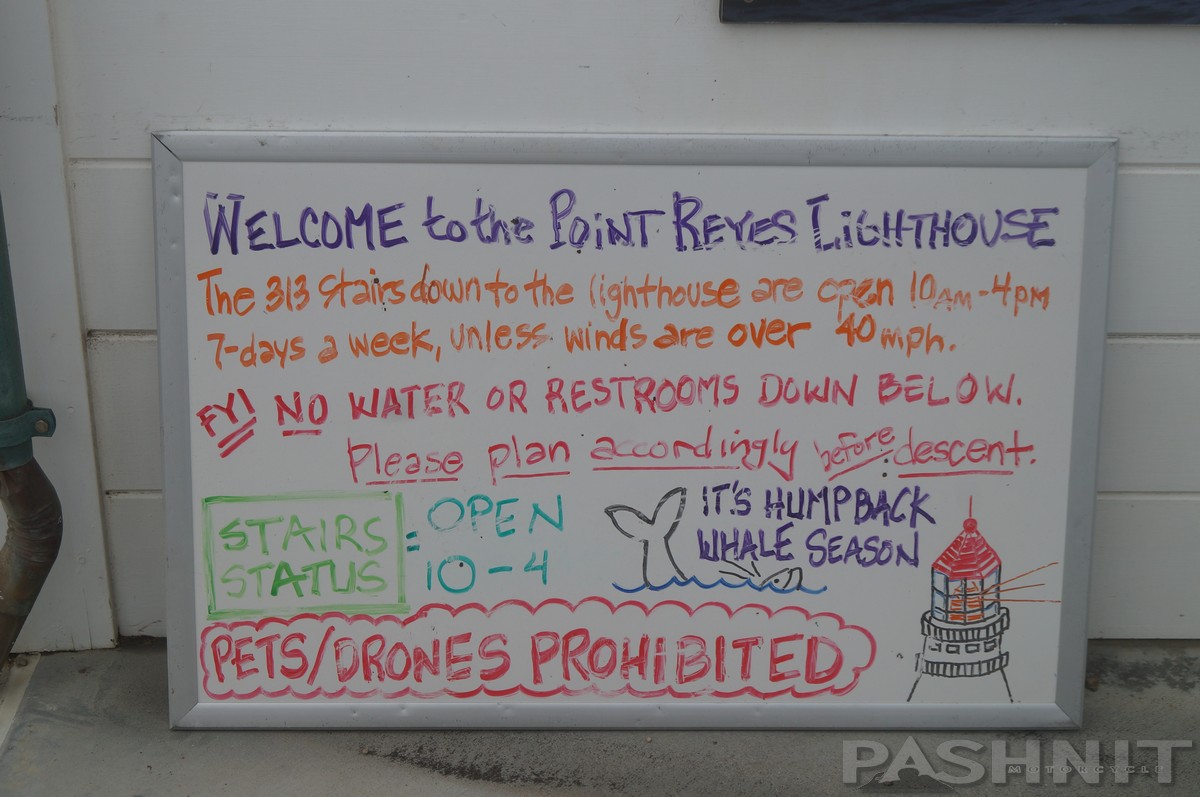 WELCOME to the POINT REYES LIGHTHOUSE
The 313 stairs down to the lighthouse are open 10AM-4PM
7-days a week, unless winds are over 40 mph.
FYI NO WATER OR RESTROOMS DOWN BELOW.
Please plan accordingly before descent.
STAIRS
STATUS
= OPEN
10-4
IT'S HUMPBACK
WHALE SEASON
PETS/DRONES PROHIBITED
PASHNIT
MOTORCYCLE